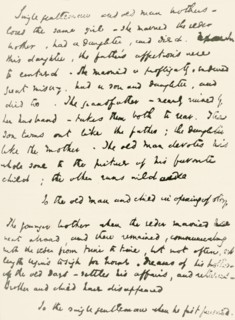 Single gentleman and old man brothers –
loved the same girl – She married the elder
brother, had a daughter, and died.
this daughter, the father's affections were
so centred. She married a profligate, endured
great misery, had a son and daughter, and
died too. The grandfather – nearly ruined by
her husband – takes them both to rear. The
son turns out like the father; the daughter
like the mother. The old man devotes his
whole soul to the picture of his favorite
child; the other runs wild
So the old man and child in opening of story
The younger brother when the elder married
went abroad, and there remained, communicating
with the elder from time to time, but not often,
length begins to sigh for home. Dreams of his brother
of the old days – settles his affairs, and
Brother and child have disappeared
So the single gentleman when he first